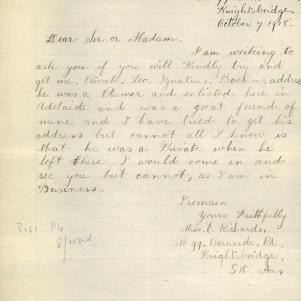 Knightsbridge
October 7 1918.
Dear Sir or Madam.
I am writing to
ask you if you will Kindly try and
get me, Private, Leo, Ignatius, address
he was a and enlisted here in
Adelaide and was a great friend of
mine and I have tried to get his
address but cannot all I know is
that he was a Private when he
left there. I would come in and
see you but cannot, as I am in
Business.
I remain
Yours Faithfully
Miss. E. Richards,
Burnside, Rd.
Knightsbridge,
Sth Aus